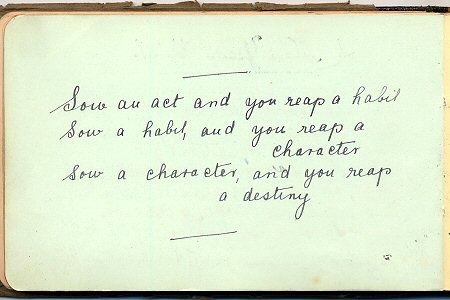 Sow an act and you reap a habit
Sow a habit, and you reap a
character
Sow a character, and you reap
a destiny